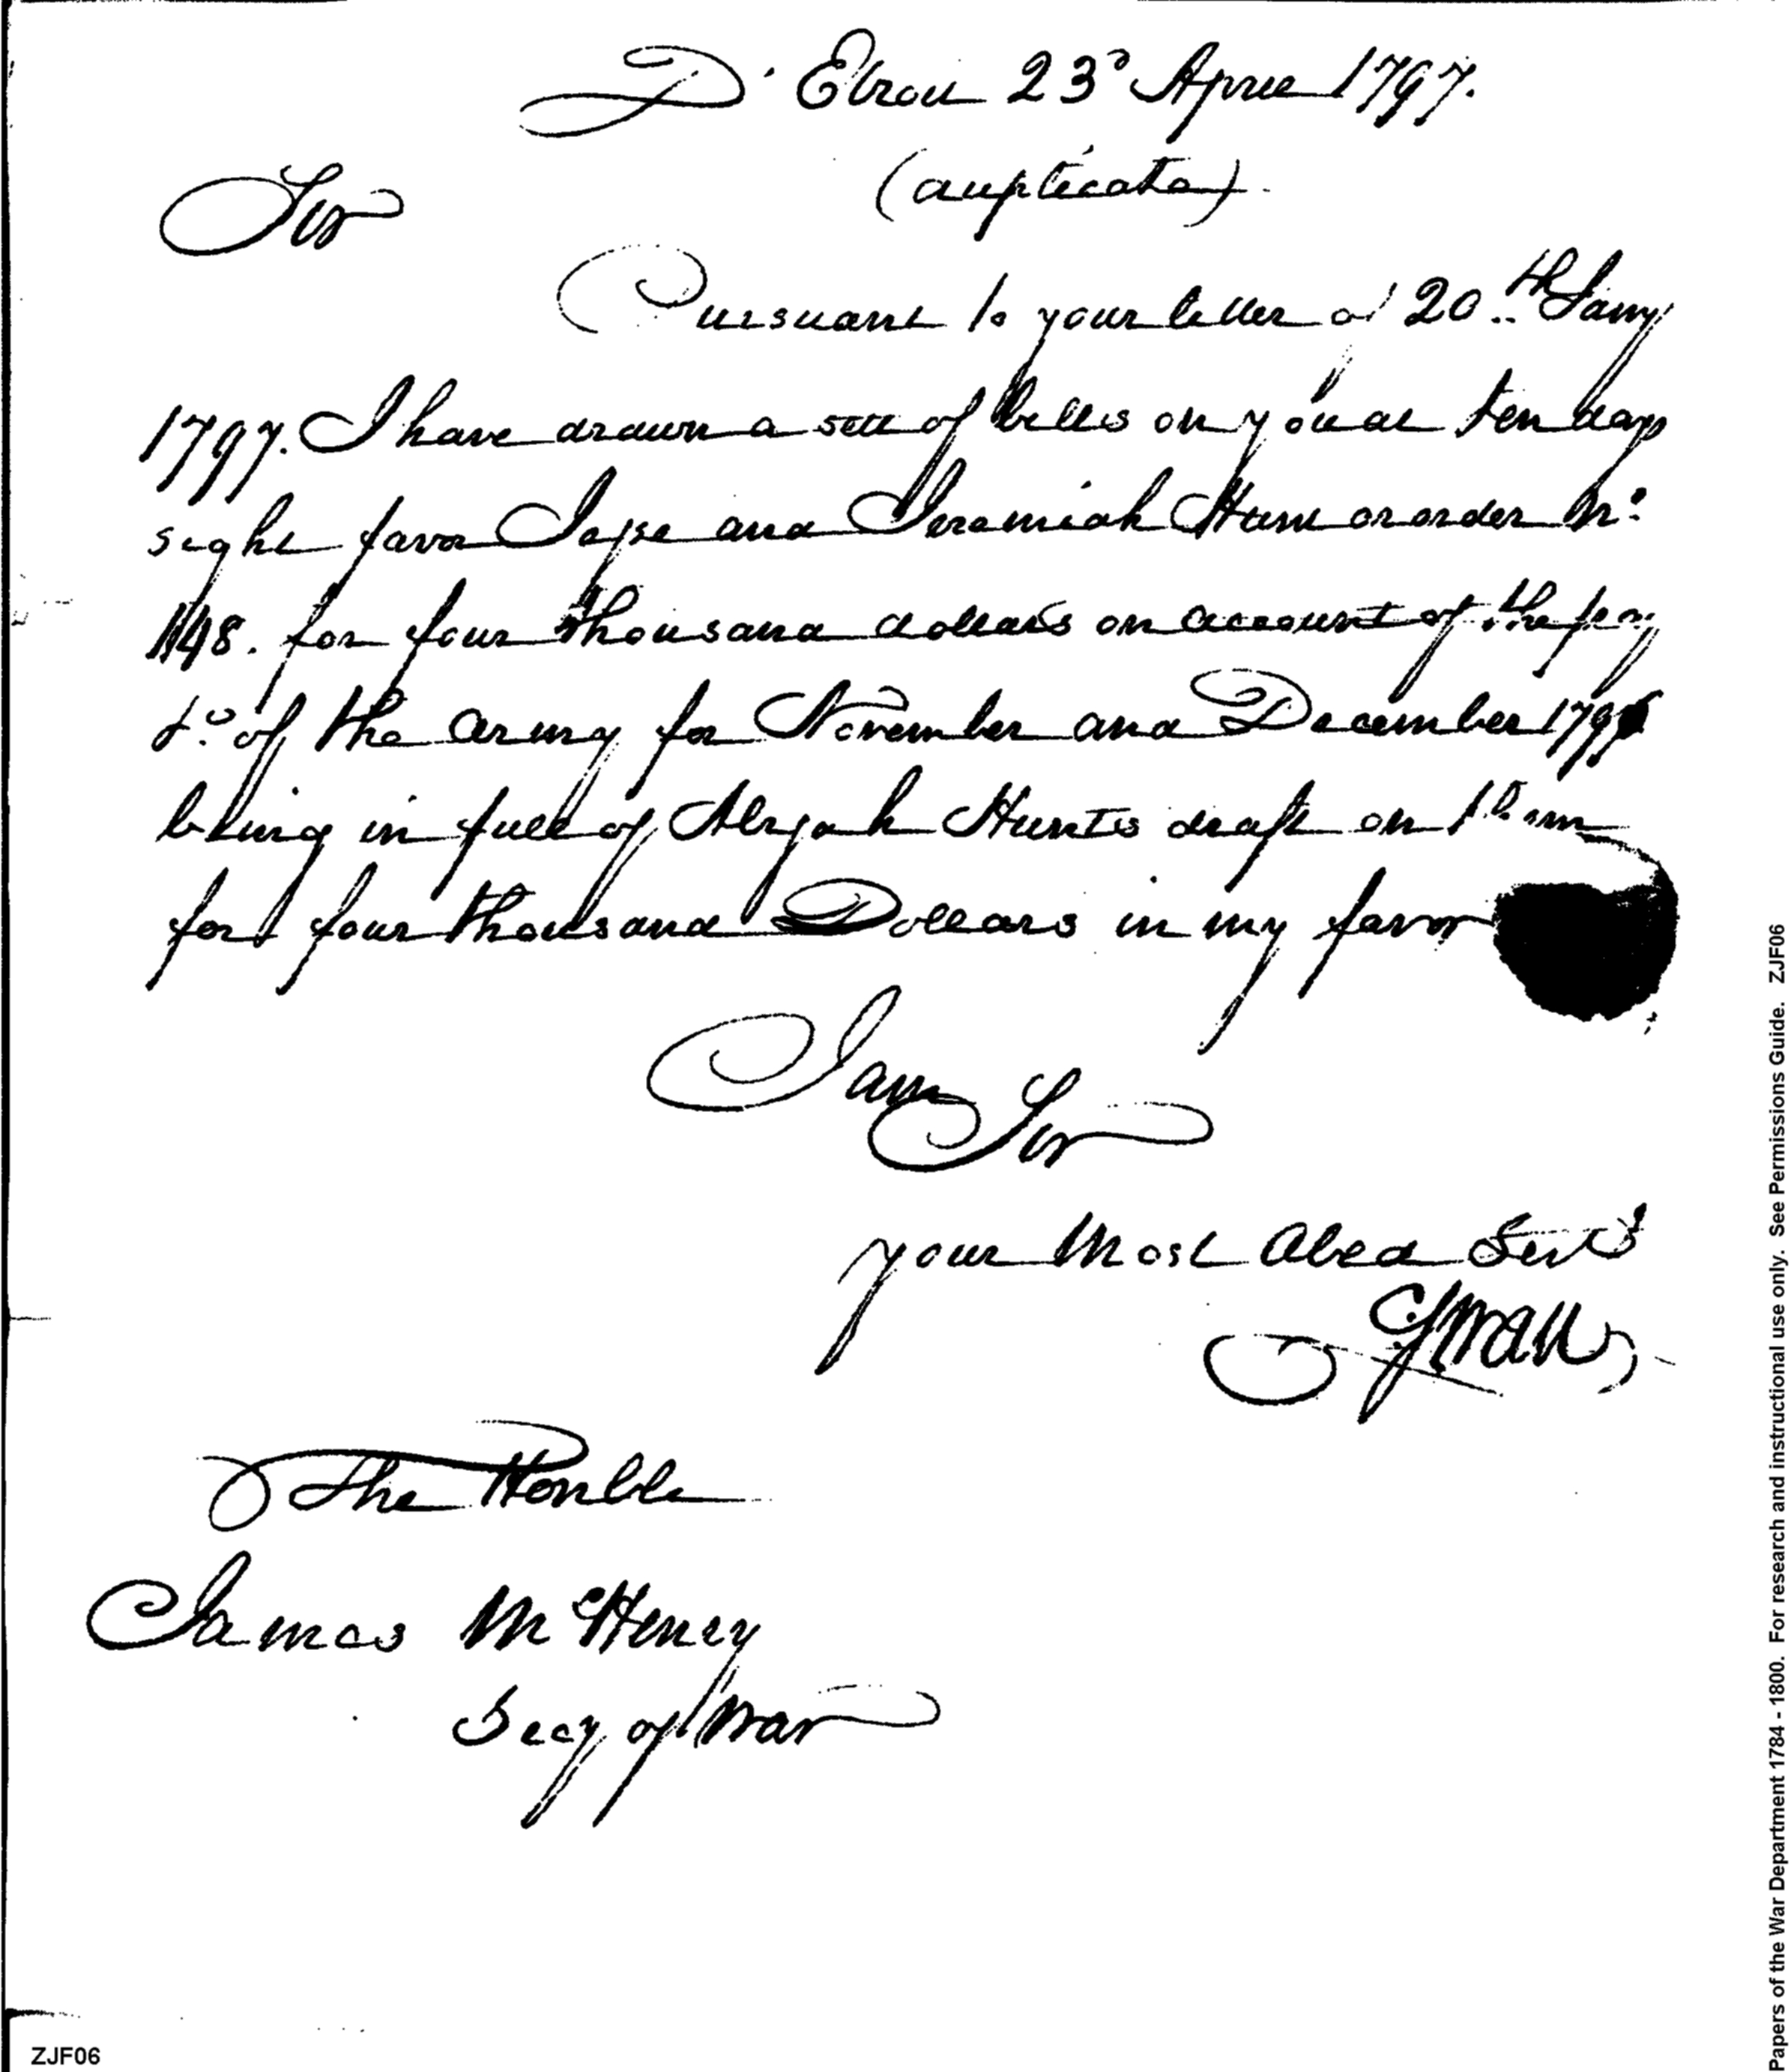 D'Etroit 23d April 1797.
(duplicate)
Sir
Pursuant to your letter of 20th Jany
1797. I have drawn a sett of bills on you at ten days
sight favor Jesse and Jeremiah Hunt or order No
148. for four thousand dollars on account of the pay
&c of the Army for November and December 1796
being in full of Abijah Hunts draft on them
for four thousand Dollars in my favor
I am
Sir
your Most Obed Servt
C Swan
The Honble
James McHenry
Secy of War
ZJF06
Papers of the War Department 1784 - 1800. For research and instructional use only. See Permissions Guide. ZJF06